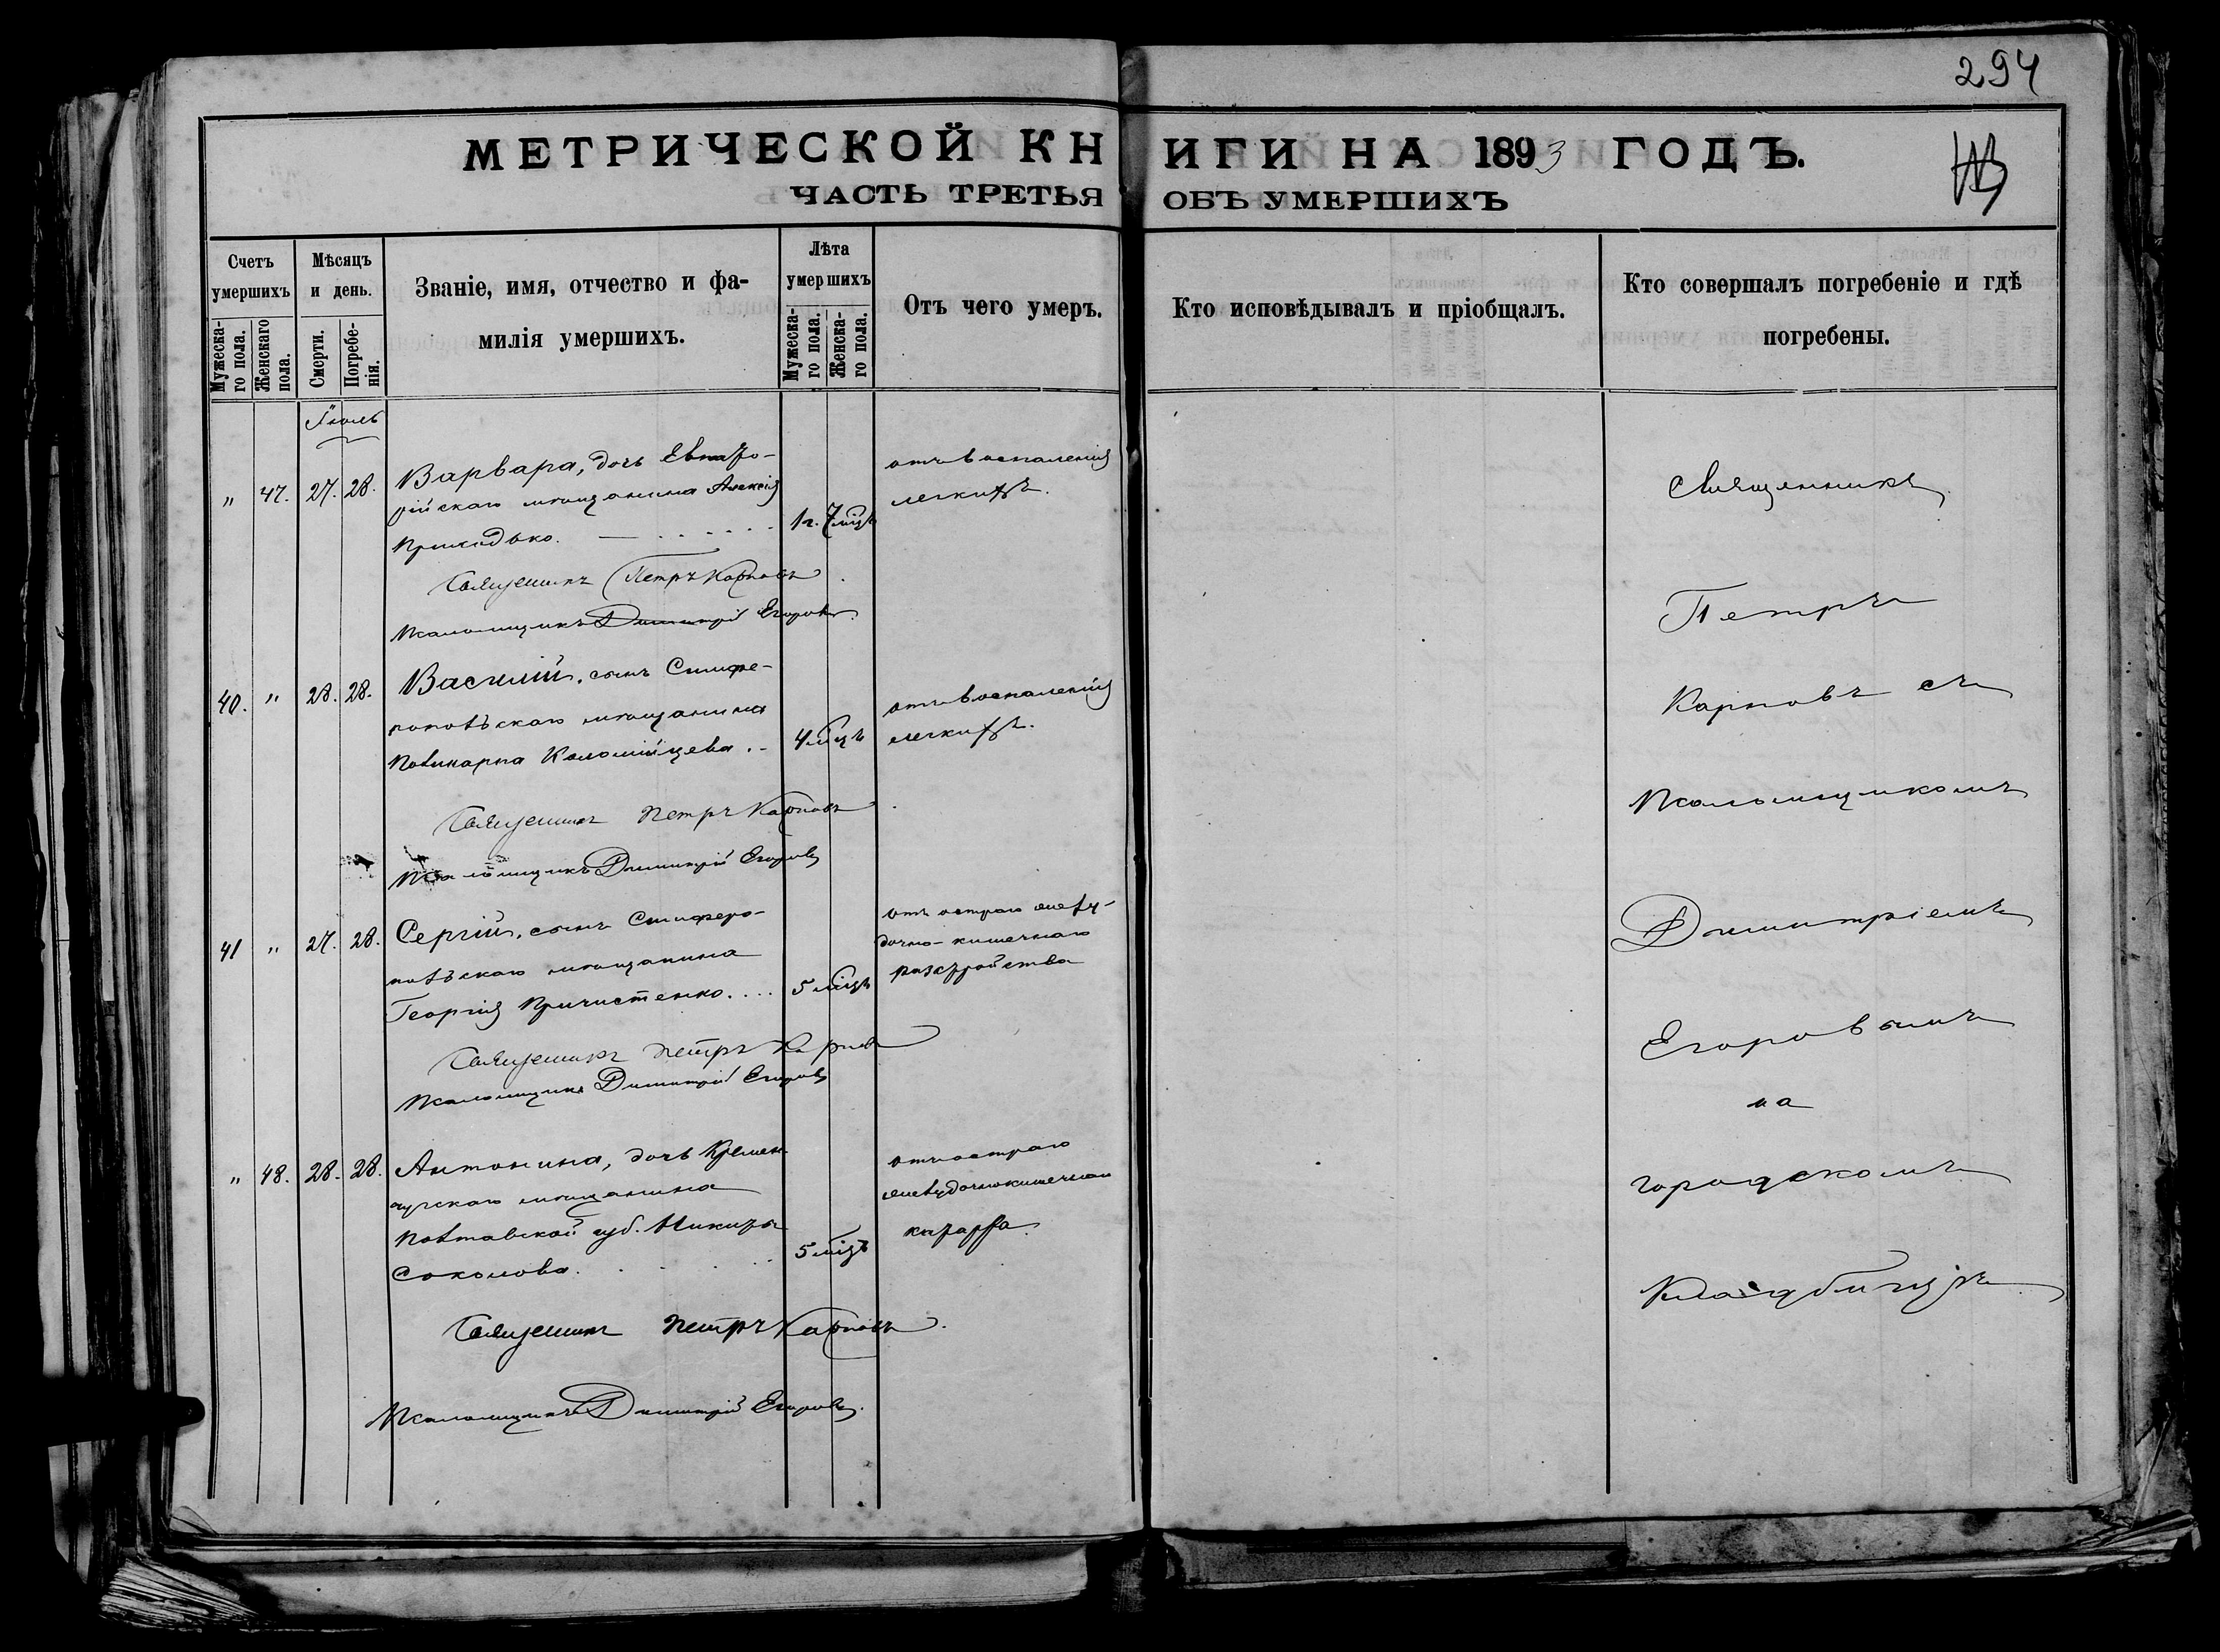 294
МЕТРИЧЕСКОЙ КНИГИ НА 1893 ГОДЪ.
ЧАСТЬ ТРЕТЬЯ ОБЪ УМЕРШИХЪ
Счетъ умершихъ
Мужеска-го пола.
Женскаго пола.
Мѣсяцъ и день.
Смерти.
Погребе-нія.
Званіе, имя, отчество и фа-
милія умершихъ.
Лѣта умершихъ
Мужеска-го пола.
Женска-го пола.
Отъ чего умеръ.
Кто исповѣдывалъ и пріобщалъ.
Кто совершалъ погребеніе и гдѣ
погребены.
Іюль
" 47. 27. 28. Варвара, дочь Евпато-
рійскаго мѣщанина Алексія
Приходько. 1 г. 7 міцъ
отъ воспаленія
легкихъ.
Священникъ Петръ Карповъ
Псаломщикъ Димитрій Егоровъ.
40. " 28. 28. Василій, сынъ Симфе-
ропольскаго мѣщанина
Поликарпа Коломійцева. 4 міцъ
отъ воспаленія
легкихъ.
Священникъ Петръ Карповъ
Псаломщикъ Димитрій Егоровъ
41 " 27. 28. Сергій, сынъ Симферо-
польскаго мѣщанина
Георгія Причистенко. 5 міцъ
отъ остраго желу-
дочно-кишечнаго
разстройства
Священникъ Петръ Карповъ
Псаломщикъ Димитрій Егоровъ
" 48. 28. 28. Антонина, дочь Кремен-
чугскаго мѣщанина
Полтавской губ. Никиты
Соколова. 5 міцъ
отъ остраго
желудочнокишечнаго
катарра.
Священникъ Петръ Карповъ.
Псаломщикъ Димитрій Егоровъ.
Священникъ
Петръ
Карповъ съ
Псаломщикомъ
Димитріемъ
Егоровымъ
на
городскомъ
Кладбищѣ